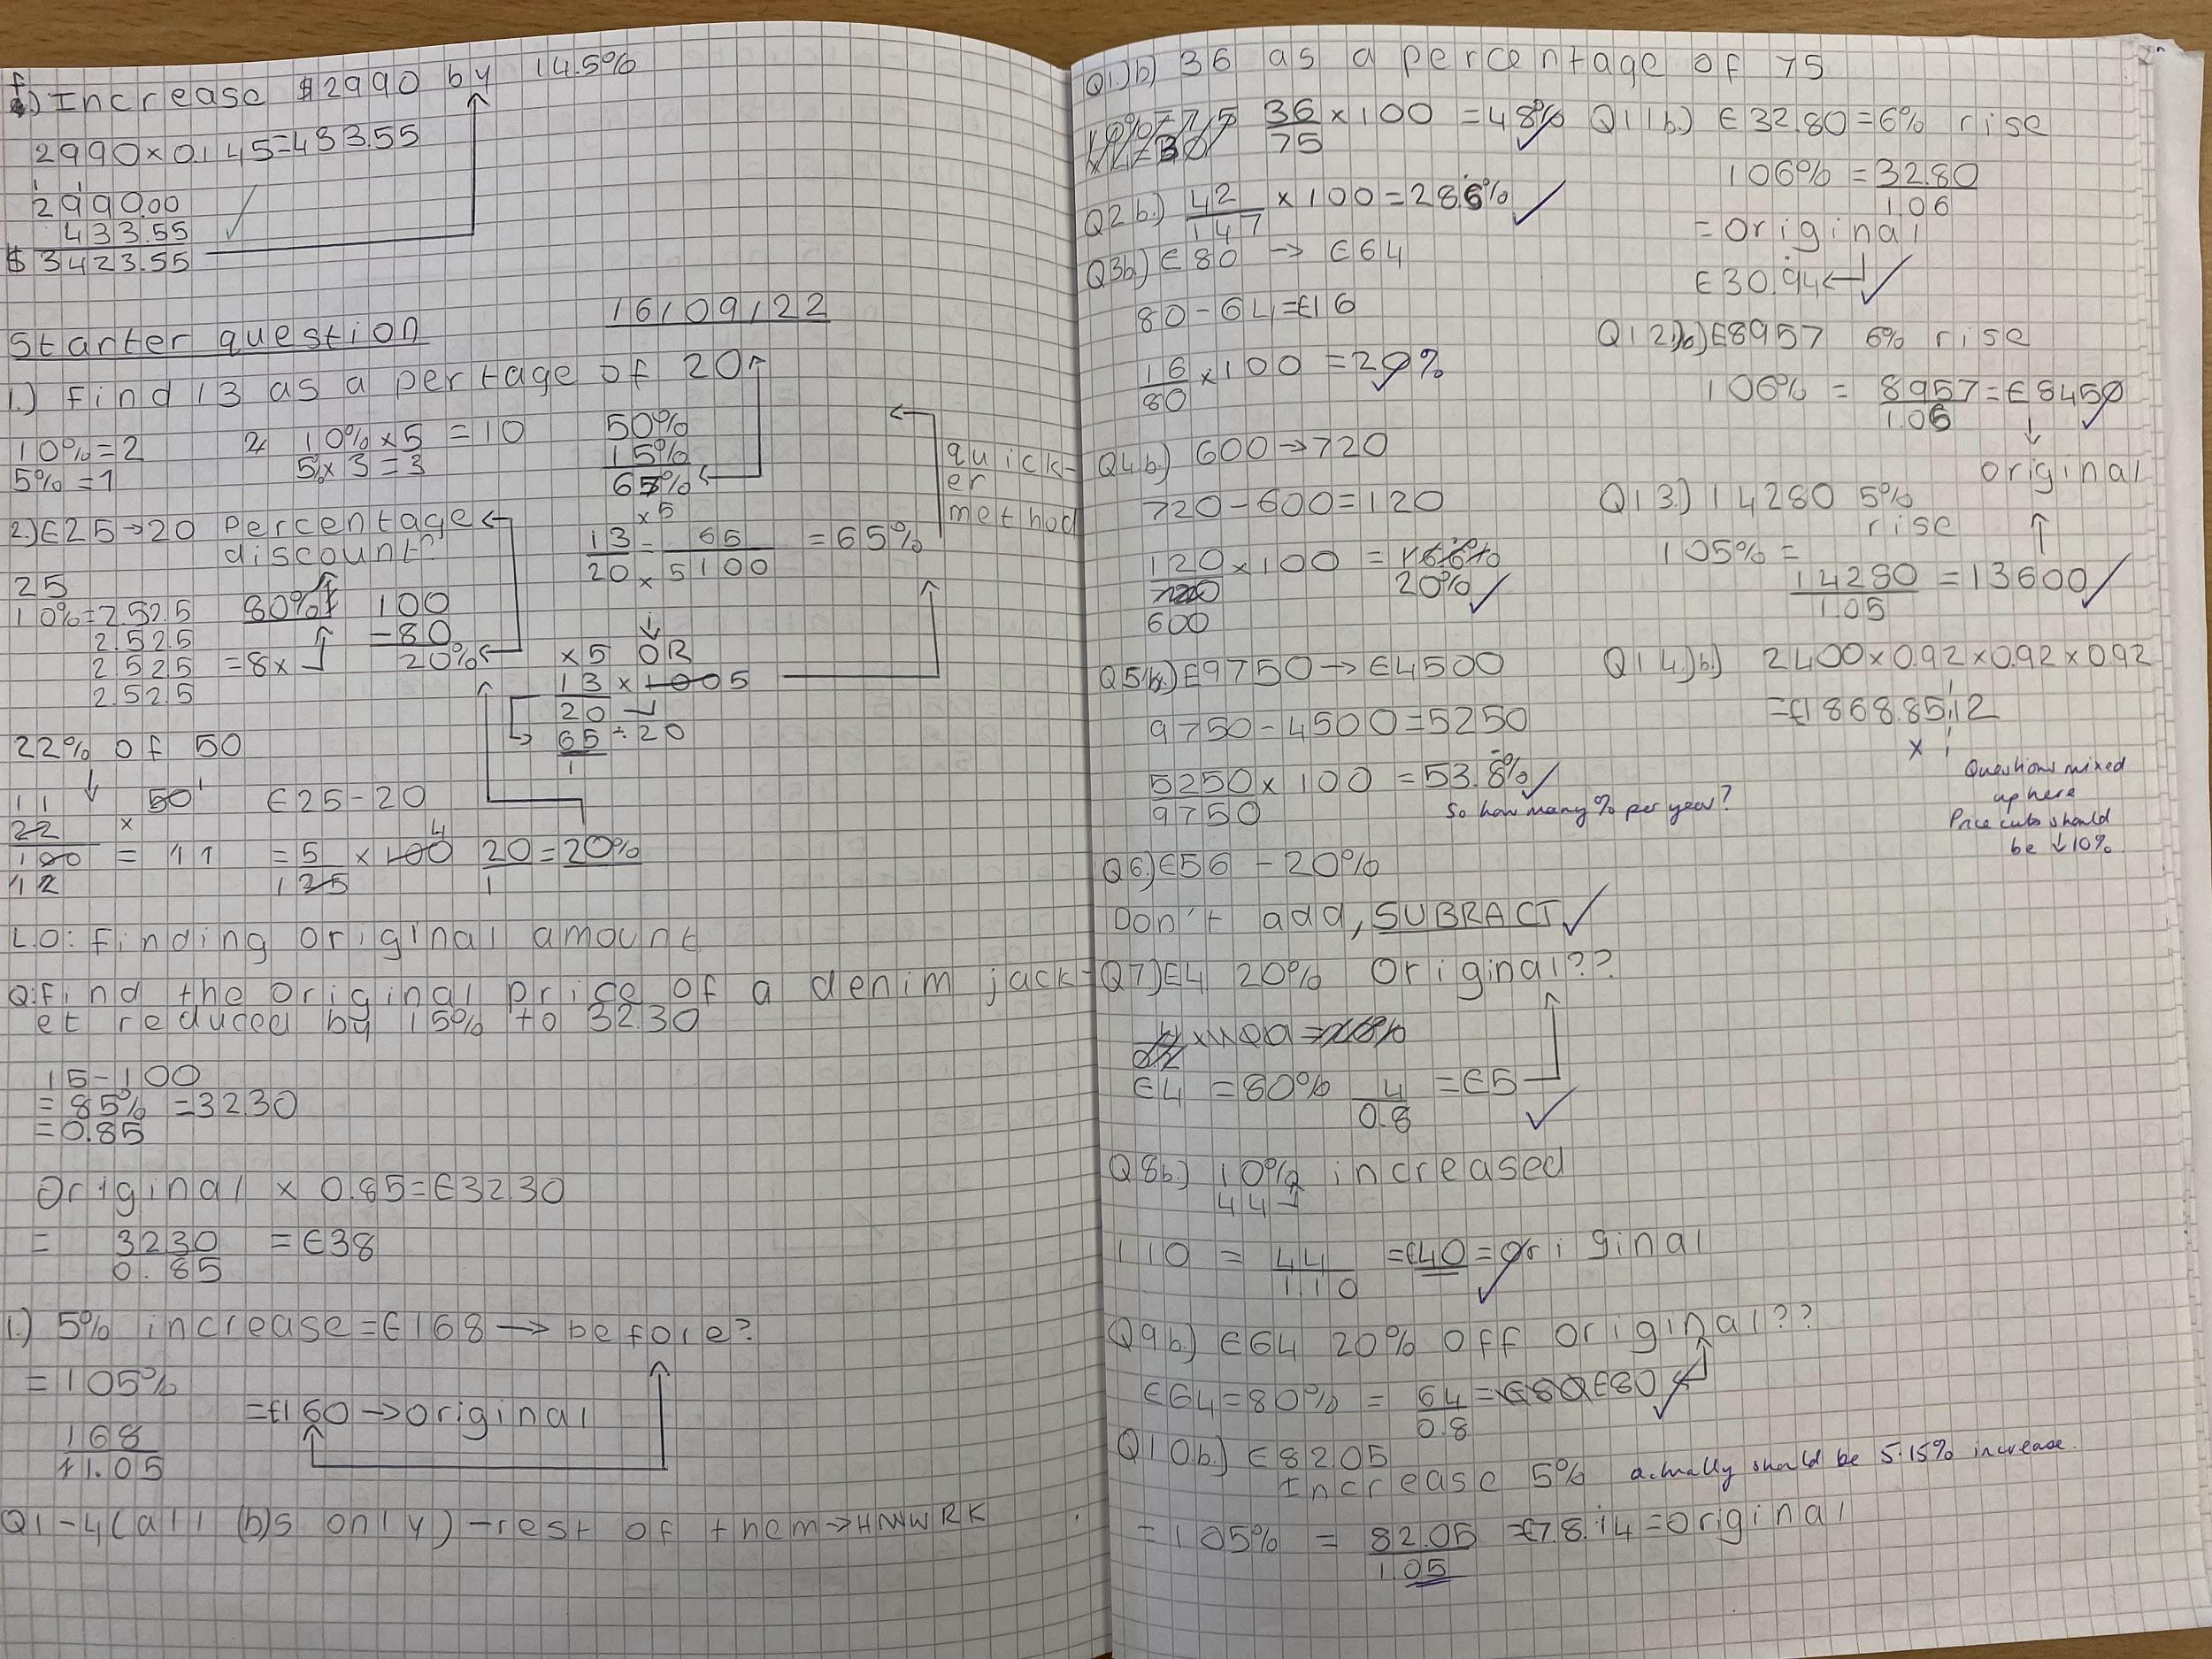 f.) Increase $2990 by 14.5%
2990×0.145=433.55
2990.00
433.55
$3423.55
16/09/22
Starter question
1.) Find 13 as a pertage of 20
10%=2
5%=1
10%×5=10
5×3=3
50%
15%
65%
quick-
er
method
×5
13 = 65 =65%
20 ×5 100
2.) €25→20 Percentage
discount?
25
10%=2.52.5
2.52.5
2.52.5 =8×
2.52.5
80%
100
-80
20%
×5 OR
13 × 100 5
20 1
65÷20
1
22% of 50
11
22 × 50 1
100 = 11
12
€25-20
=5 × 100 4 20=20%
1 25 1
L.O: Finding original amount
Q:Find the original price of a denim jack-
et reduced by 15% to 32.30
15-100
=85% =32.30
=0.85
Original × 0.85=€32.30
= 32.30 =€38
0.85
1.) 5% increase=€168→before?
=105%
=£160→original
168
1.05
Q1-4(all (b)s only)-rest of them→HMWWRK
Q1.)b) 36 as a percentage of 75
36 ×100 =48%
75
Q2b.) 42 ×100=28.6%
147
Q3b.) €80 → €64
80-64=£16
16 ×100 =20%
80
Q4b.) 600→720
720-600=120
120×100 = 16.6%
720 20%
600
Q5b.) €9750→€4500
9750-4500=5250
5250×100 =53.8%
9750
So how many % per year?
Q6)€56 -20%
Don't add, SUBRACT
Q7)€4 20% Original??
€4 =80% 4 =€5
0.8
Q8b.) 10% increased
44
110 = 44 =£40=original
1.10
Q9b) €64 20% off original??
€64=80% = 64 =€80€80
0.8
Q10b.) €82.05
Increase 5% actually should be 5.15% increase.
=105% = 82.05 =£78.14=original
1.05
Q11b.) €32.80=6% rise
106% =32.80
1.06
=Original
€30.94
Q12.)b)€8957 6% rise
106% = 8957=€8450
1.06
original
Q13.) 14280 5%
rise
105%=
14280 =13600
1.05
Q14.)b.) 2400×0.92×0.92×0.92
=£1868.85,12
×
Questions mixed
up here
Price cuts should
be ↓10%.